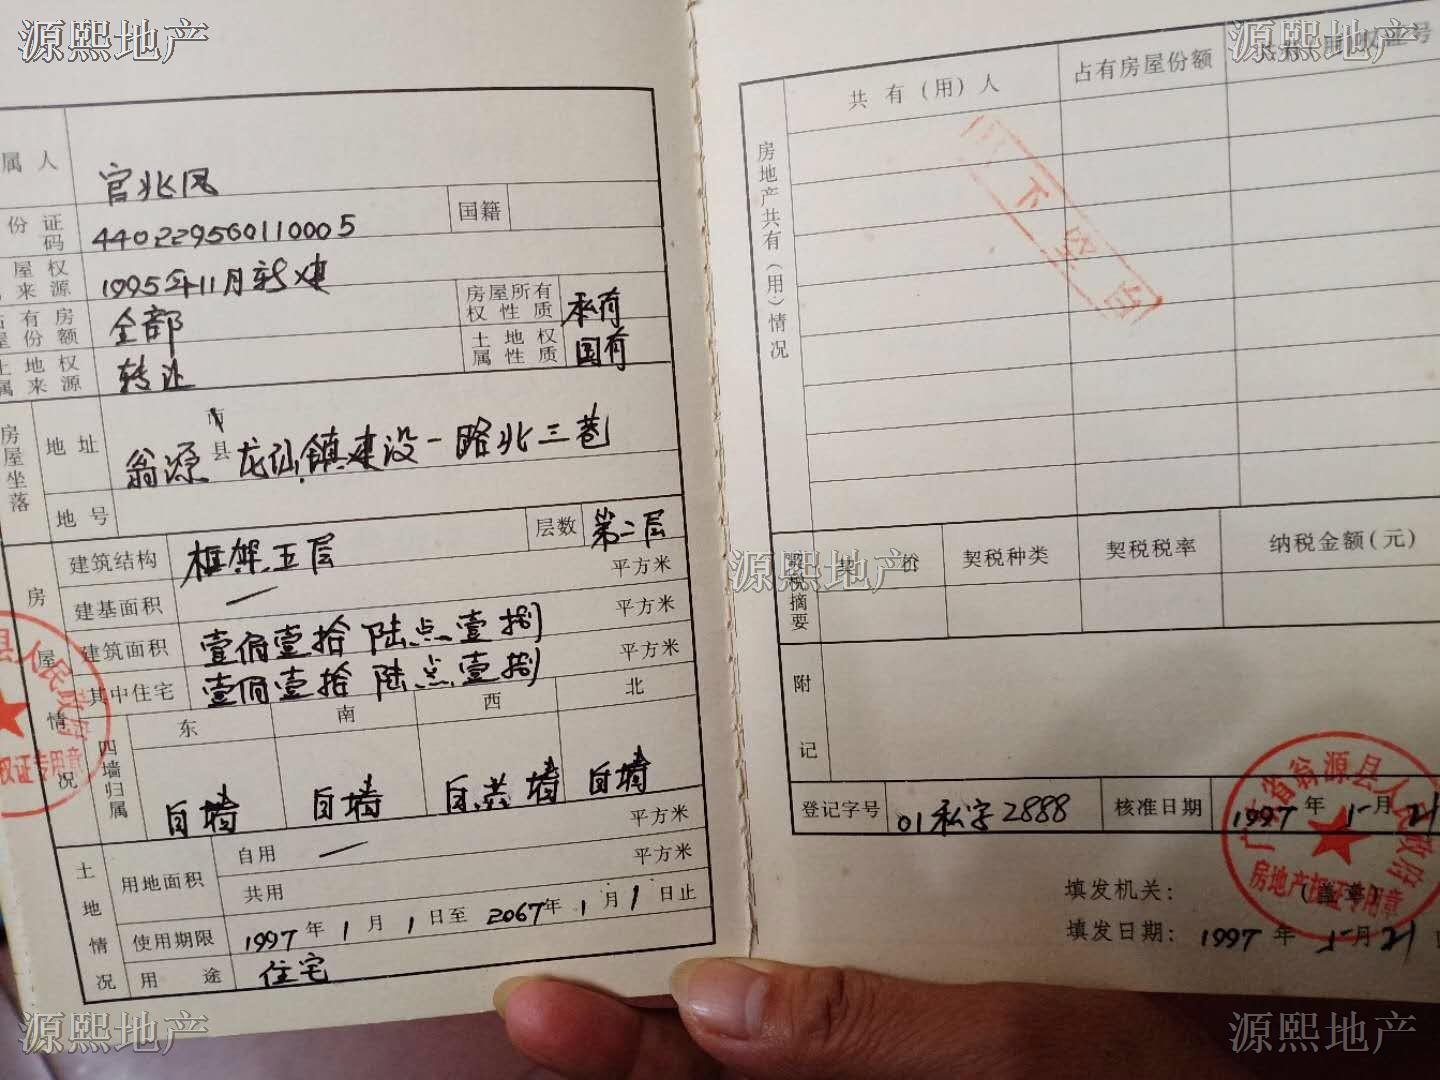 源熙地产
源熙地产
属人 官兆凤
份证码 440229560110005 国籍
屋权来源 1995年11月新建 房屋所有权性质 私有
占有房屋份额 全部 土地权属性质 国有
土地权属来源 转让
房屋坐落 地址 翁源 市县 龙仙镇建设一路北三巷
地号
房屋情况 建筑结构 框架五层 层数 第二层
建基面积 一 平方米
建筑面积 壹佰壹拾陆点壹捌 平方米
其中住宅 壹佰壹拾陆点壹捌 平方米
四墙归属 东 南 西 北
自墙 自墙 自.共墙 自墙
土地情况 用地面积 自用 一 平方米
共用 平方米
使用期限 1997年1月1日至2067年1月1日止
用途 住宅
县人民政府
权证专用章
房地产共有(用)情况 共有(用)人 占有房屋份额
以下空白
契税摘要 契价 契税种类 契税税率 纳税金额(元)
源熙地产
附记
登记字号 01私字2888 核准日期 1997年 月21
广东省翁源县人民政府
房地产权证专用章
填发机关: (盖章)
填发日期: 1997年 月21日
源熙地产
源熙地产